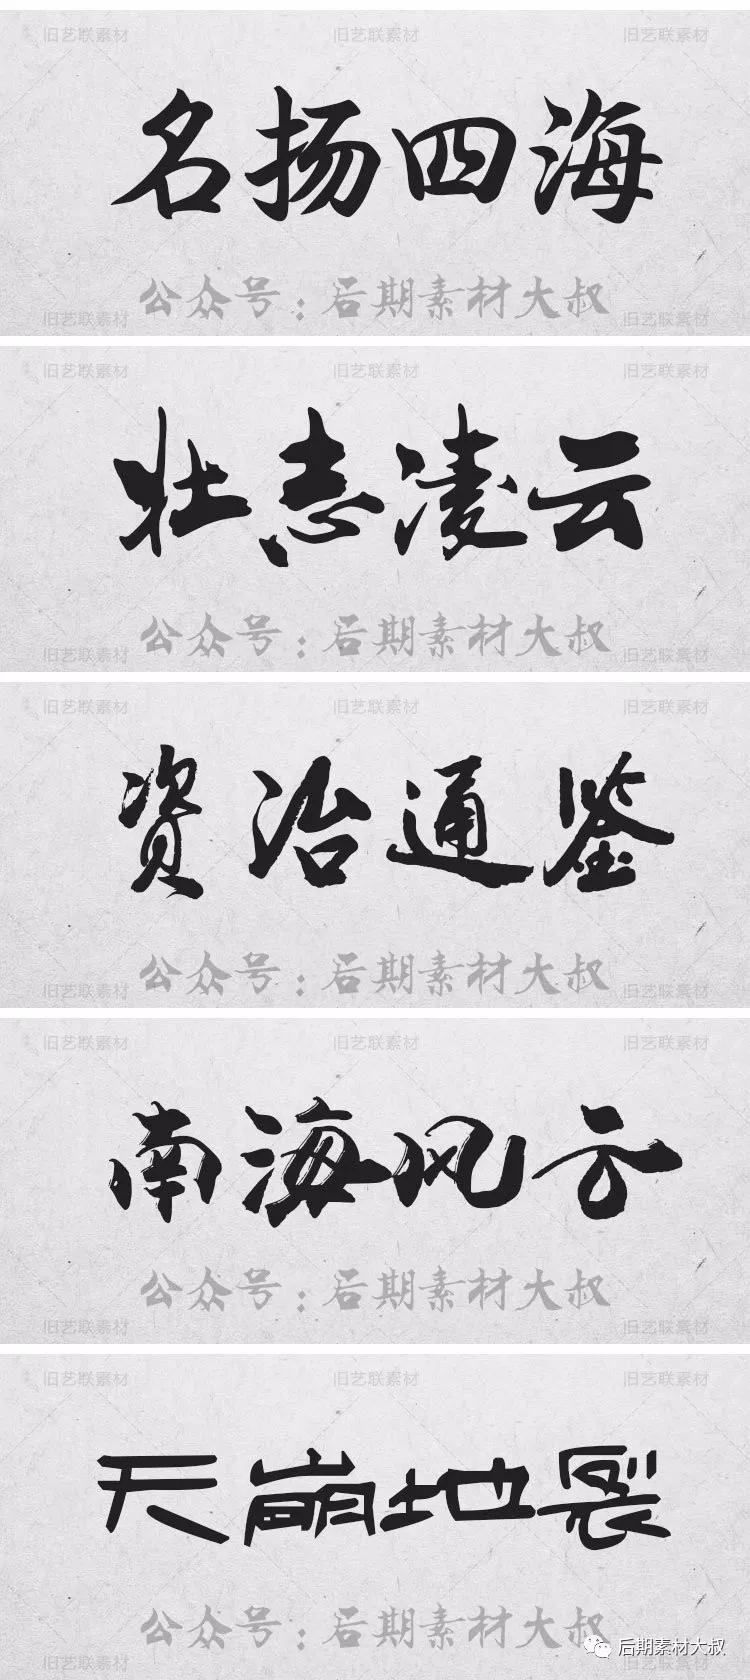 旧艺联素材 旧艺联素材 旧艺联素材
名扬四海
公众号：后期素材大叔
旧艺联素材 旧艺联素材
旧艺联素材 旧艺联素材 旧艺联素材
壮志凌云
公众号：后期素材大叔
旧艺联素材 旧艺联素材
旧艺联素材 旧艺联素材 旧艺联素材
資治通鉴
公众号：后期素材大叔
旧艺联素材 旧艺联素材
旧艺联素材 旧艺联素材 旧艺联素材
南海风云
公众号：后期素材大叔
旧艺联素材 旧艺联素材
旧艺联素材 旧艺联素材 旧艺联素材
天崩地裂
公众号：后期素材大叔
后期素材大叔
旧艺联素材 旧艺联素材